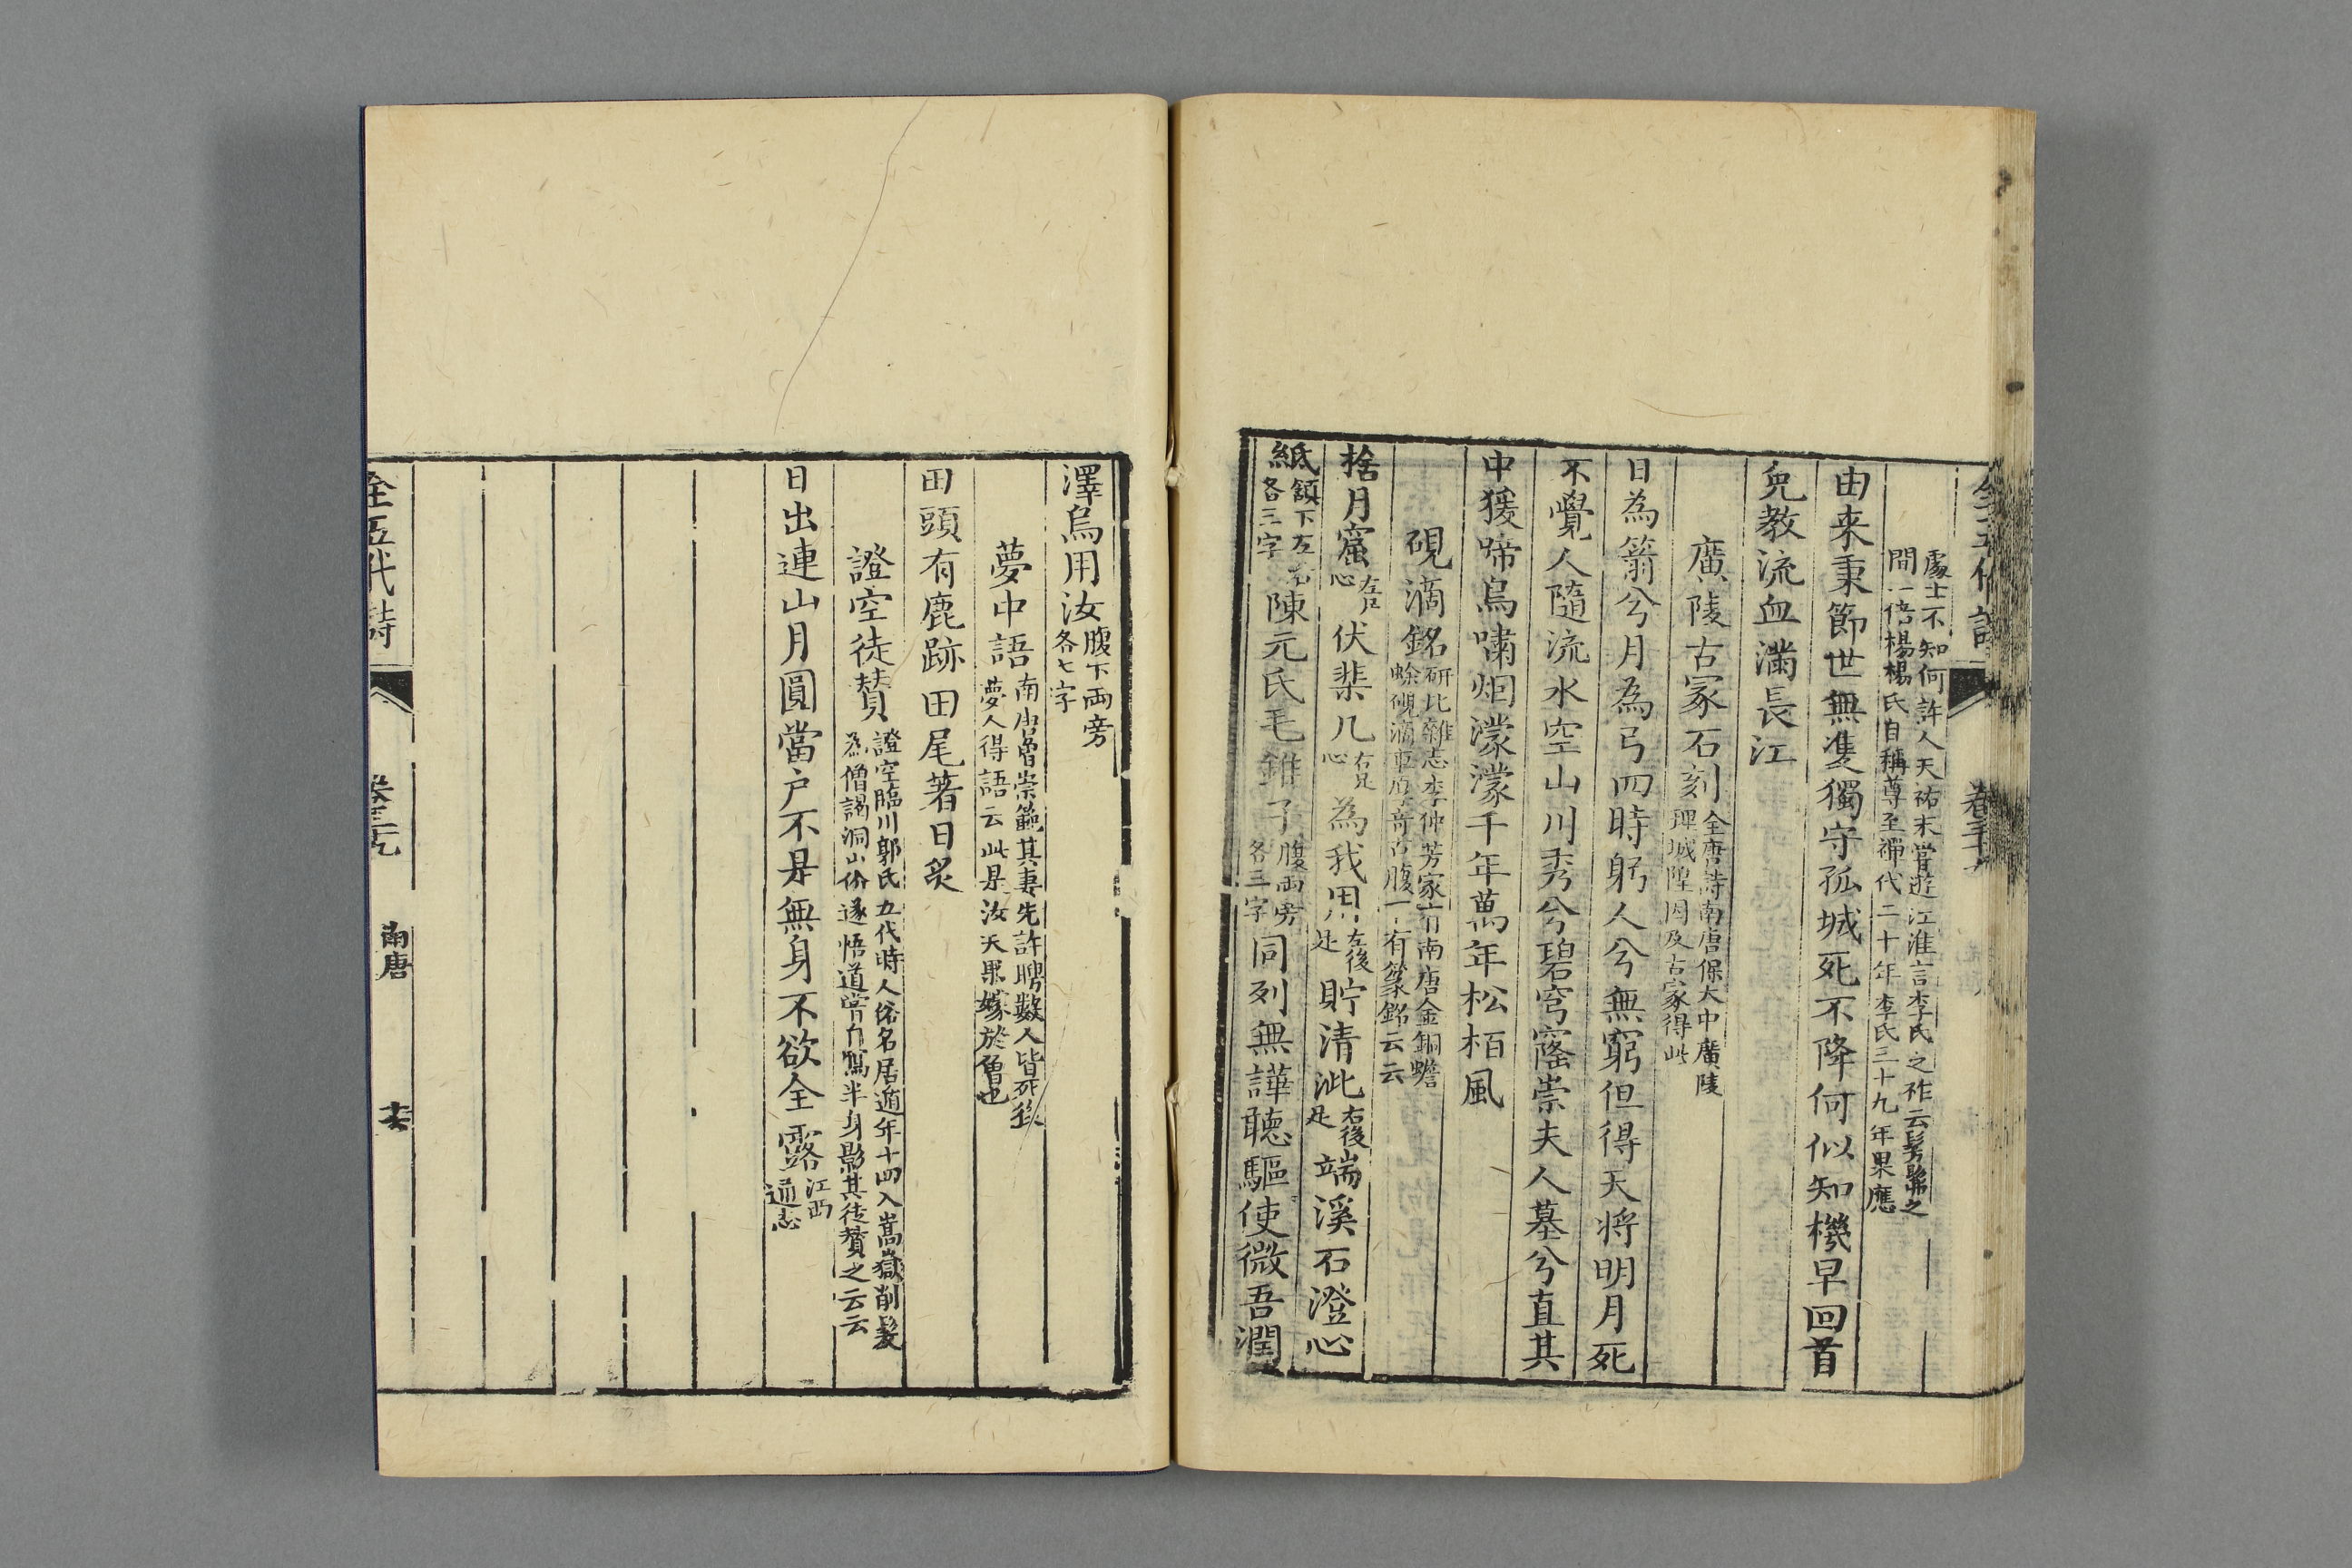 處士不知何許人天祐末嘗遊江淮言李氏之祚云髣髴之
間一倍楊楊氏自稱尊至禪代二十年李氏三十九年果應
由来秉節世無隻獨守孤城死不降何似知機早回首
免教流血滿長江
廣陵古冢石刻全唐詩南唐保大中廣陵
理城隍因及古冢得此
日為箭兮月為弓四時躬人兮無窮但得天将明月死
不覺人隨流水空山川秀兮碧穹窿崇夫人墓兮直其
中猨啼烏嘯烟濛濛千年萬年松栢風
硯滴銘研北雜志李仲芳家有南唐金銅蟾
蜍硯滴重厚奇古腹下有篆銘云云
捨月窟左足心伏棐几右足心為我用左後足貯清泚右後足端溪石澄心
紙頷下左右各三字陳元氏毛錐子腹兩旁各三字同列無譁聽驅使微吾潤
澤烏用汝腹下兩旁各七字
夢中語南唐魯崇範其妻先許聘數人皆死後
夢人得語云此是汝夫果嫁於魯也
田頭有鹿跡田尾著日炙
證空徒賛證空臨川郭氏五代時人俗名居遁年十四入嵩嶽削髮
為僧謁洞山价遂悟道嘗自寫半身影其徒賛之云云
日出連山月圓當户不是無身不欲全露江西通志
全五代詩
南唐